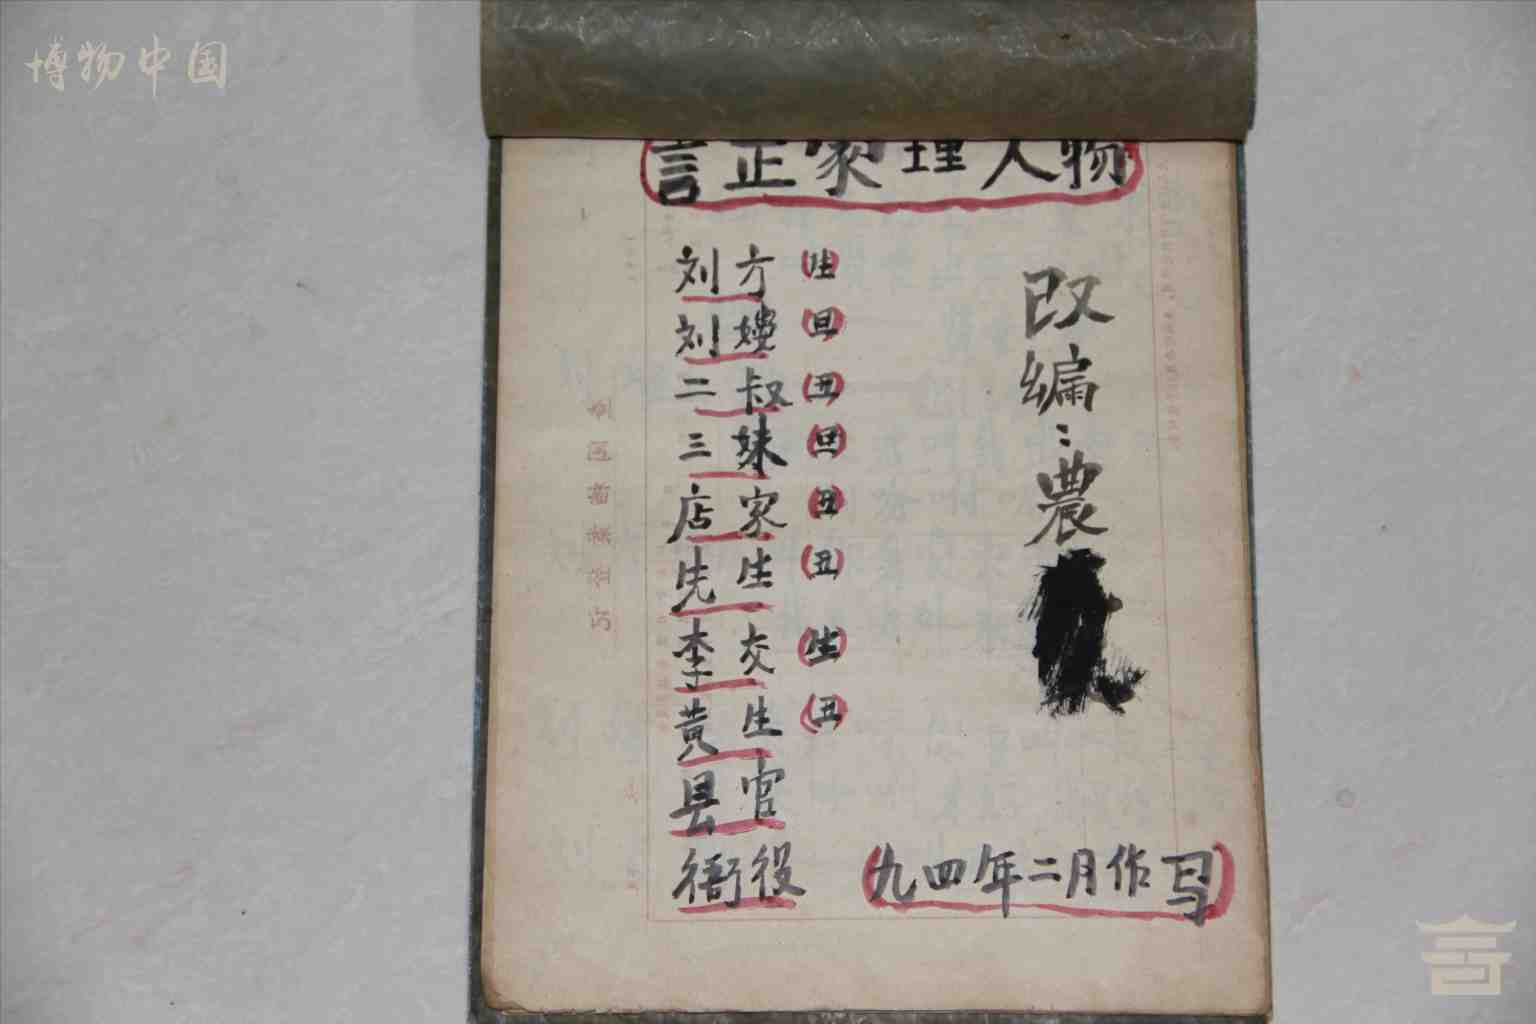 博物中国
言正家理人物
刘方(生)
刘嫂(旦)
二叔(丑)
三妹(旦)
店家(丑)
先生(丑)
李交(生)
黄生(丑)
县官
衙役
改编:農
(九四年二月作写)